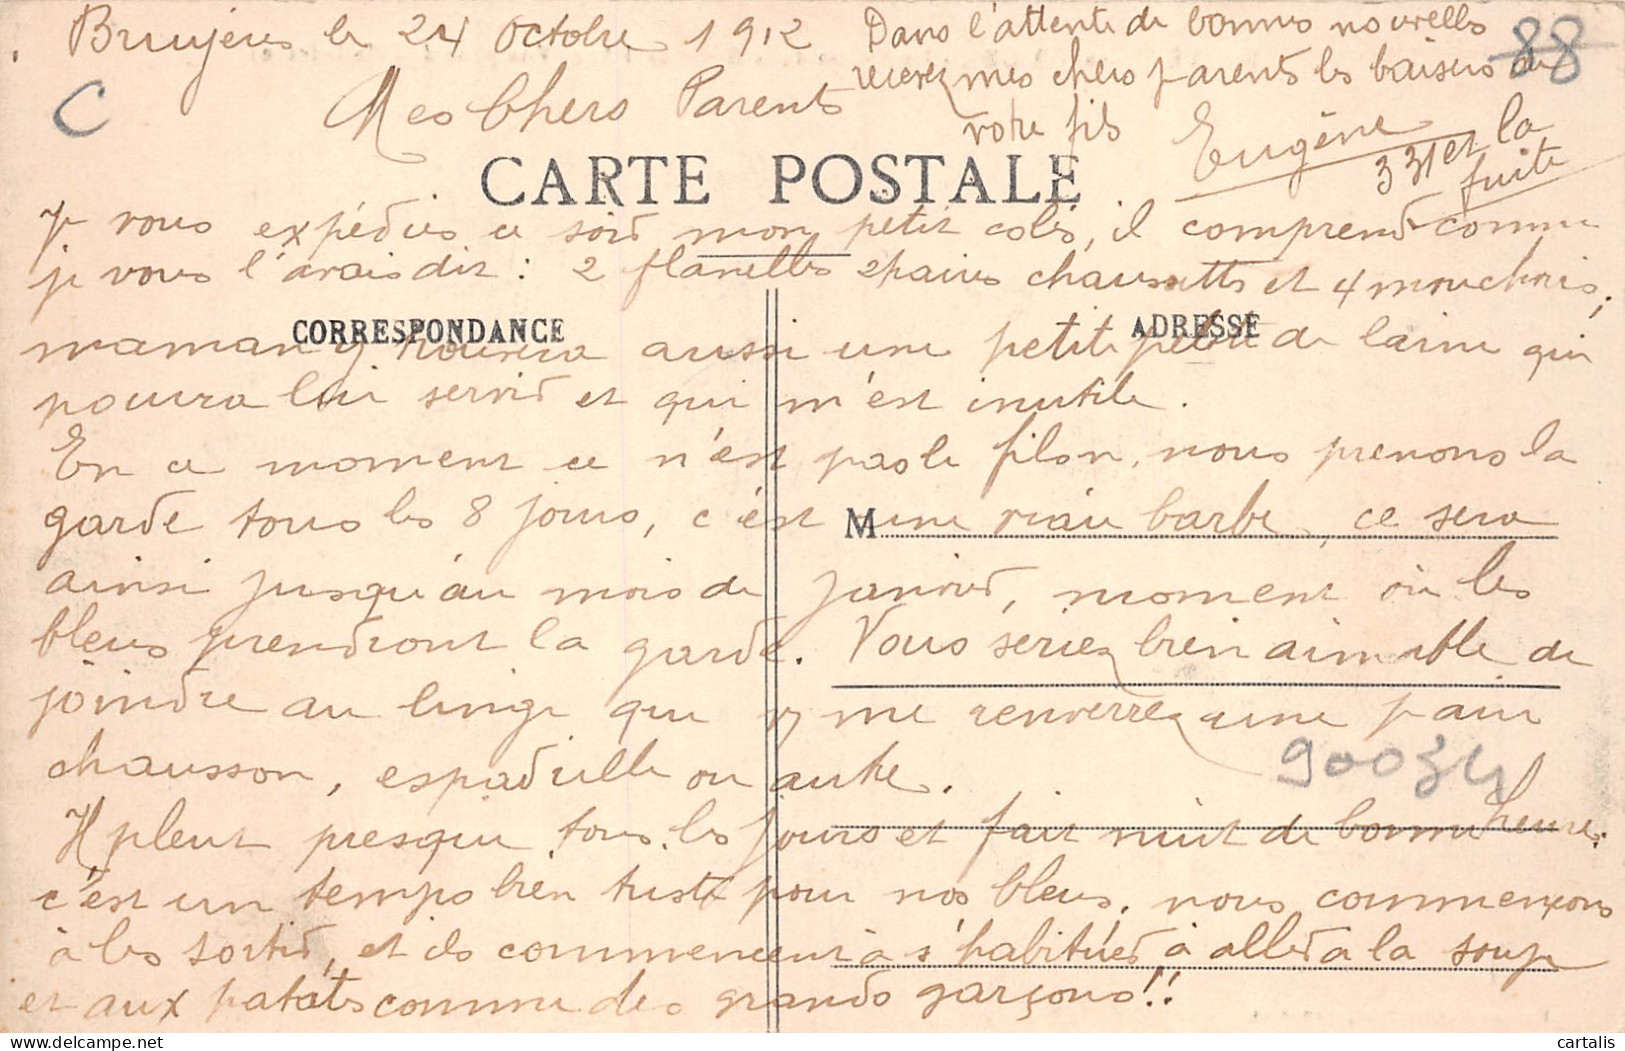 Bruyères le 24 Octobre 1912
Mes Chers Parents
CARTE POSTALE
Je vous expédies ce soir mon petit colis, il comprend comme
je vous l'avais dit : 2 flanelles 2 paires chaussetts et 4 mouchoirs,
CORRESPONDANCE
ADRESSE
maman y trouvera aussi une petite pelote de laine qui
pourra lui servir et qui m'est inutile.
En ce moment ce n'est pas le filon, nous prenons la
garde tous les 8 jours, c'est M une vraie barbe, ce sera
ainsi jusqu'au mois de janvier, moment où les
bleus prendront la garde. Vous seriez bien aimable de
joindre au linge que vs me renverrez une pair
chausson, espadrille ou autre.
Il pleut presque tous les jours et fait nuit de bonne heure.
c'est un temps bien triste pour nos bleus, nous commençons
à les sortir, et ils commencent à s'habituer à aller à la soupe
et aux patates comme des grands garçons!!
Dans l'attente de bonnes nouvelles
recevez mes chers parents les baisers de
votre fils
Eugène
331 et la
fuite
88
C
90034
cartalis
delcampe.net